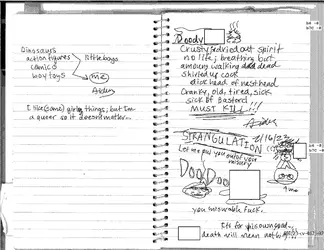 Dinosaurs
action figures
comics
boy toys
little boys
me
Aiden
I like (some) girly things, but I'm
a queer so it doesn't matter...
Doody
Crusty dried out spirit
no life; breathing but
among walking dead
shriveled up cock
dick head of
Cranky, old, tired, sick
sick of Bastard
MUST KILL!!!
Aiden
STRANGULATION
Let me put you out of your
misery
Doo Doo
you miserable fuck.
It's for his own good...
death will mean nothing